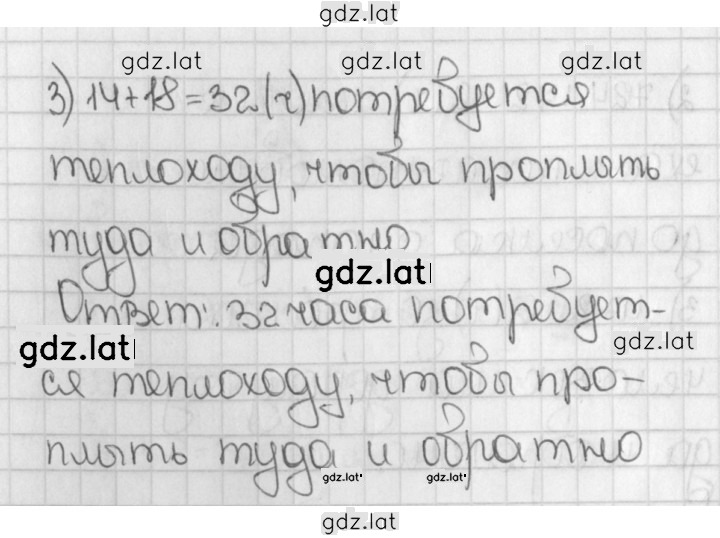 gdz.lat
gdz.lat gdz.lat gdz.lat
3) 14+18=32(ч) потребуется
теплоходу, чтобы проплыть
туда и обратно
gdz.lat
Ответ: 32 часа потребует-
gdz.lat gdz.lat
ся теплоходу, чтобы про-
плыть туда и обратно
gdz.lat gdz.lat
gdz.lat